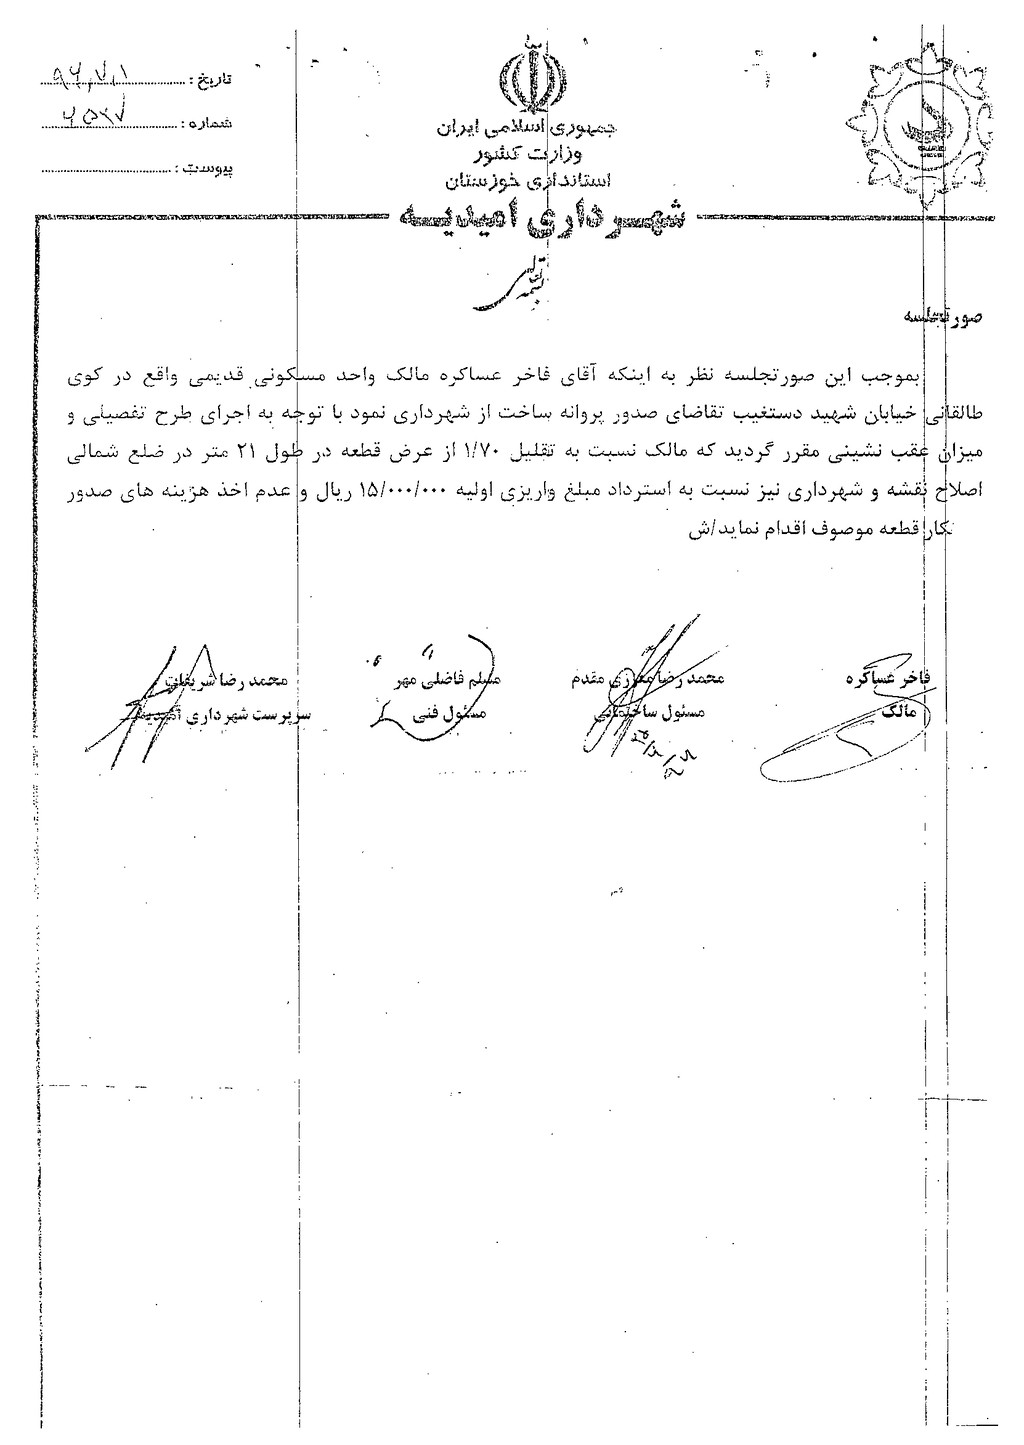 جمهوری اسلامی ایران
وزارت کشور
استانداری خوزستان
شهرداری امیدیه
تاریخ :
شماره :
پیوست :
بسمه تعالی
صورتجلسه
بموجب این صورتجلسه نظر به اینکه آقای فاخر عساکره مالک واحد مسکونی قدیمی واقع در کوی
طالقانی خیابان شهید دستغیب تقاضای صدور پروانه ساخت از شهرداری نمود با توجه به اجرای طرح تفصیلی و
میزان عقب نشینی مقرر گردید که مالک نسبت به تقلیل ۱/۷۰ از عرض قطعه در طول ۲۱ متر در ضلع شمالی
اصلاح نقشه و شهرداری نیز نسبت به استرداد مبلغ واریزی اولیه ۱۵/۰۰۰/۰۰۰ ریال و عدم اخذ هزینه های صدور
قطعه موصوف اقدام نماید/ش
فاخر عساکره محمد رضا معززی مقدم مسلم فاضلی مهر محمد رضا شریفات
مالک مسئول ساختمانی مسئول فنی سرپرست شهرداری امیدیه